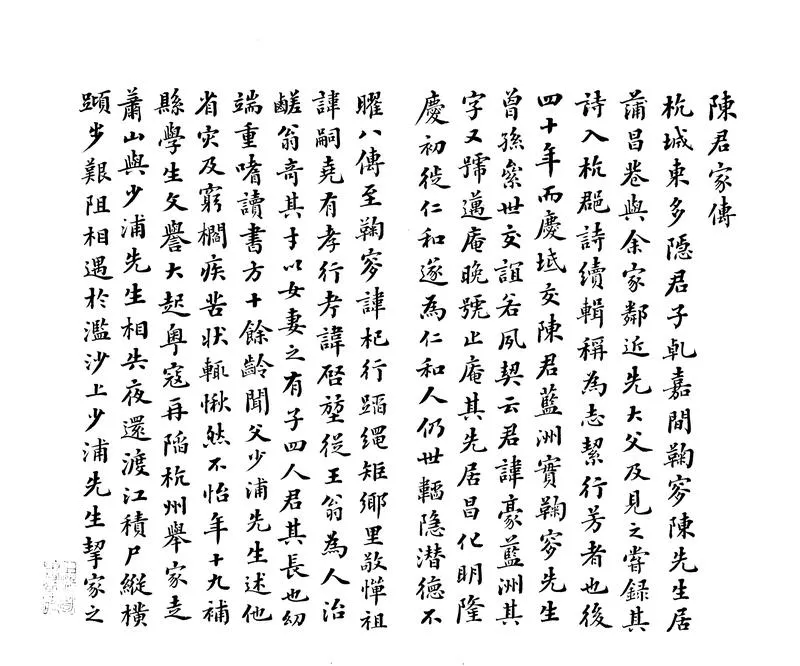 陳君家傳
杭城東多隱君子乹嘉間鞠寥陳先生居
蒲昌巷與余家鄰近先大父及見之嘗録其
詩入杭郡詩續輯稱為志絜行芳者也後
四十年而慶坻交陳君藍洲實鞠寥先生
曾孫絫世交誼若夙契云君諱豪藍洲其
字又號邁庵晚號止庵其先居昌化明隆
慶初徙仁和遂為仁和人仍世韜隐潜德不
曜八傳至鞠寥諱杞行蹈繩矩鄉里敬憚祖
諱嗣堯有孝行考諱啓堃從王翁為人治
鹺翁竒其才以女妻之有子四人君其長也幼
端重嗜讀書方十餘齡聞父少浦先生述他
省灾及窮櫩疾苦狀輒愀然不怡年十九補
縣學生文譽大起粤寇再陷杭州舉家走
蕭山與少浦先生相失夜還渡江積尸縱横
蹞步艱阻相遇於濫沙上少浦先生挈家之